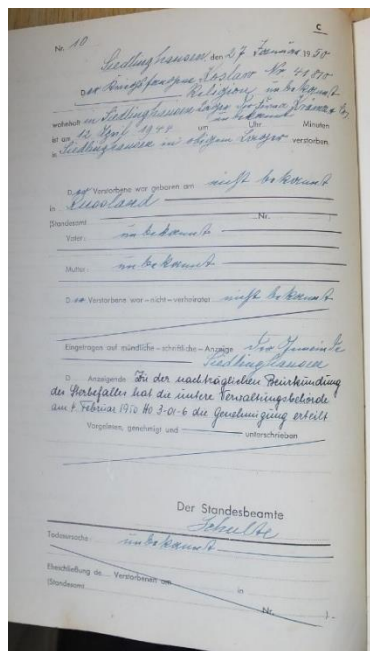 C
Nr. 10
Siedlinghausen, den 27 Januar 1950
Der Kriegsgefangene Koslaw No 41810
Religion unbekannt
wohnhaft in Siedlinghausen Lager der Firma
ist am 12 April 1944 um unbekannt Uhr Minuten
in Siedlinghausen in obigem Lager verstorben.
Der Verstorbene war geboren am nicht bekannt
in Russland
(Standesamt Nr. )
Vater: unbekannt
Mutter: unbekannt
Der Verstorbene war —nicht— verheiratet nicht bekannt
Eingetragen auf mündliche —schriftliche— Anzeige der Gemeinde
Siedlinghausen
D Anzeigende Zu der nachträglichen Beurkundung
des Sterbefalles hat die untere Verwaltungsbehörde
am 4. Februar 1950 Ho 3-01-6 die Genehmigung erteilt
Vorgelesen, genehmigt und unterschrieben
Der Standesbeamte
Schulte
Todesursache: unbekannt
Eheschließung de Verstorbenen am in
(Standesamt Nr. ).